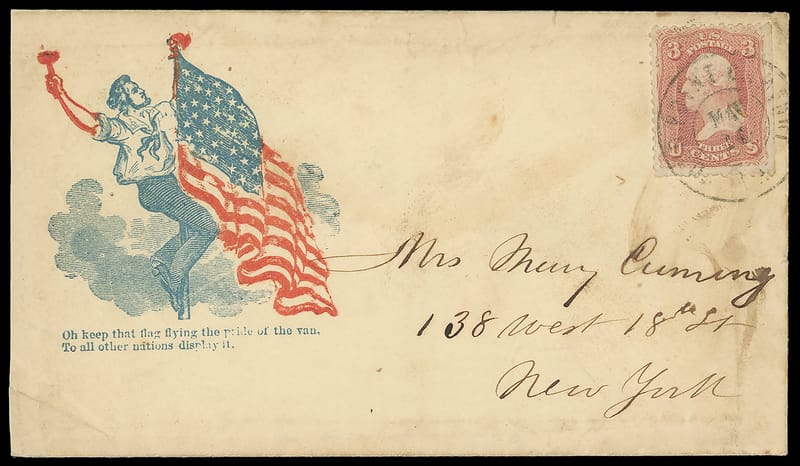 3 U.S. 3
POSTAGE
U CENTS S
MAY
Oh keep that flag flying the pride of the van,
To all other nations display it.
Mrs Mary Cuming
138 West 18th St
New York